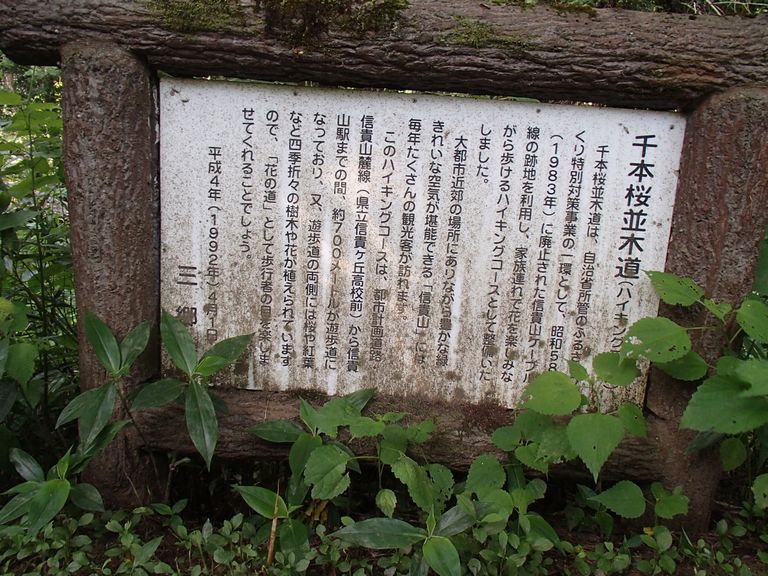 千本桜並木道(ハイキング
千本桜並木道は、自治省所管のふるさ
くり特別対策事業の一環として、昭和58
(1983年)に廃止された信貴山ケーブル
線の跡地を利用し、家族連れで花を楽しみな
がら歩けるハイキングコースとして整備いた
しました。
大都市近郊の場所にありながら豊かな緑
きれいな空気が堪能できる「信貴山」には
毎年たくさんの観光客が訪れます。
このハイキングコースは、都市計画道路
信貴山麓線(県立信貴ヶ丘高校前)から信貴
山駅までの間、約700メートルが遊歩道に
なっており、又、遊歩道の両側には桜や紅葉
など四季折々の樹木や花が植えられています
ので、「花の道」として歩行者の目を楽しま
せてくれることでしょう。
平成4年(1992年)4月
三郷